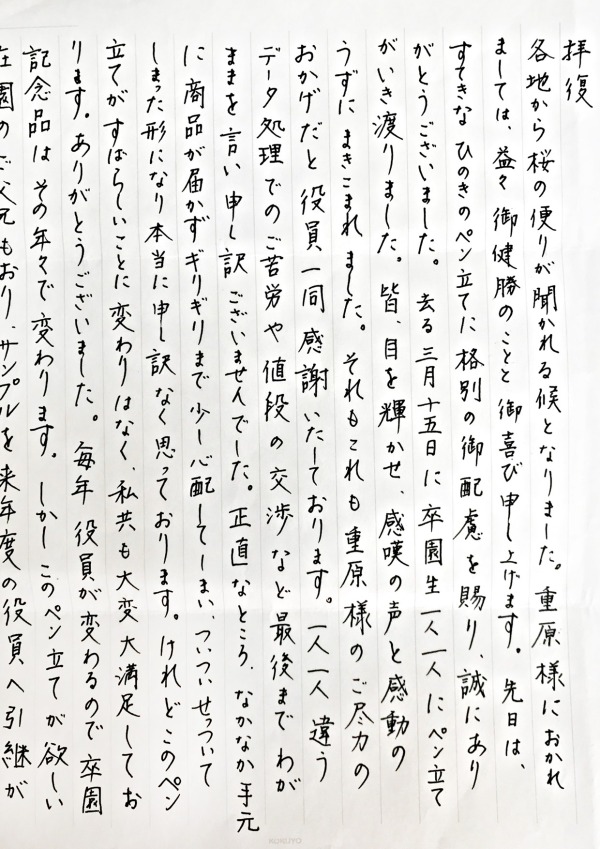 拝復
各地から桜の便りが聞かれる候となりました。重原様におかれ
ましては、益々御健勝のことと御喜び申し上げます。先日は、
すてきなひのきのペン立てに格別の御配慮を賜り、誠にあり
がとうございました。去る三月十五日に卒園生一人一人にペン立て
がいき渡りました。皆、目を輝かせ、感嘆の声と感動の
うずにまきこまれました。それもこれも重原様のご尽力の
おかげだと役員一同感謝いたしております。一人一人違う
データ処理でのご苦労や値段の交渉など最後までわが
ままを言い申し訳ございませんでした。正直なところ、なかなか手元
に商品が届かずギリギリまで少し心配してしまい、ついついせっついて
しまった形になり本当に申し訳なく思っております。けれどこのペン
立てがすばらしいことに変わりはなく、私共も大変大満足してお
ります。ありがとうございました。毎年役員が変わるので卒園
記念品はその年々で変わります。しかしこのペン立てが欲しい
在園のご父兄もおり、サンプルを来年度の役員へ引継が
KOKUYO